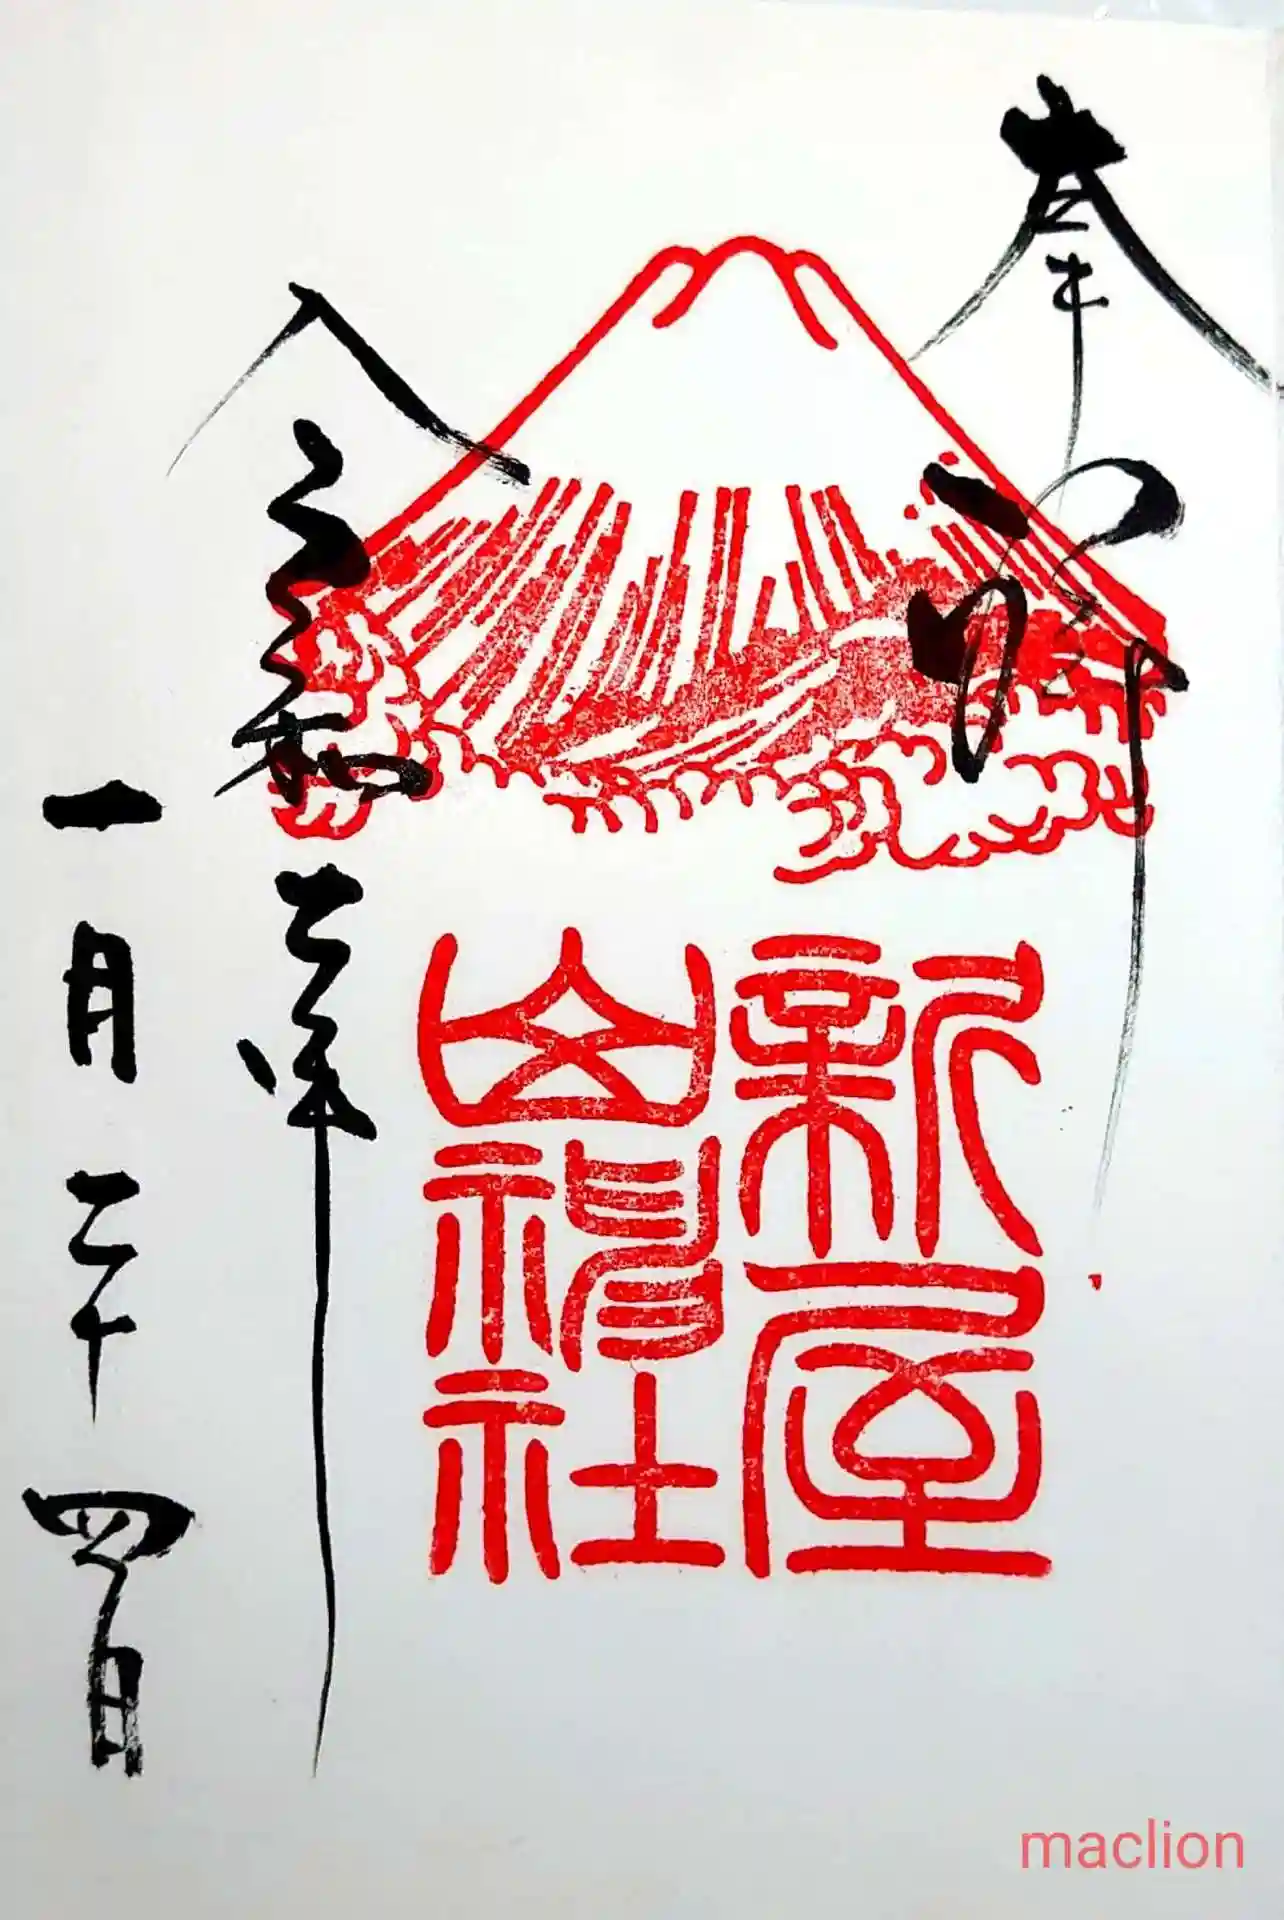 奉拝
新屋
山神社
令和七年
一月二十四日
maclion